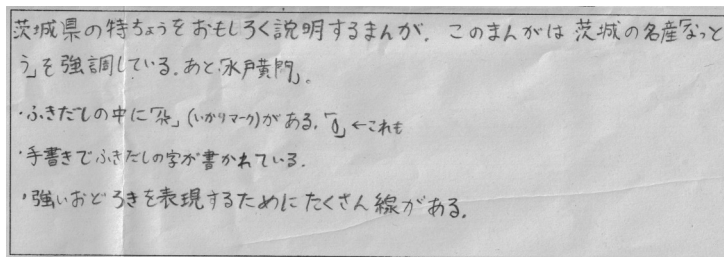 茨城県の特ちょうをおもしろく説明するまんが。このまんがは茨城の名産「なっと
う」を強調している。あと「水戸黄門」。
・ふきだしの中に「」(いかりマーク)がある。「」←これも
・手書きでふきだしの字が書かれている。
・強いおどろきを表現するためにたくさん線がある。